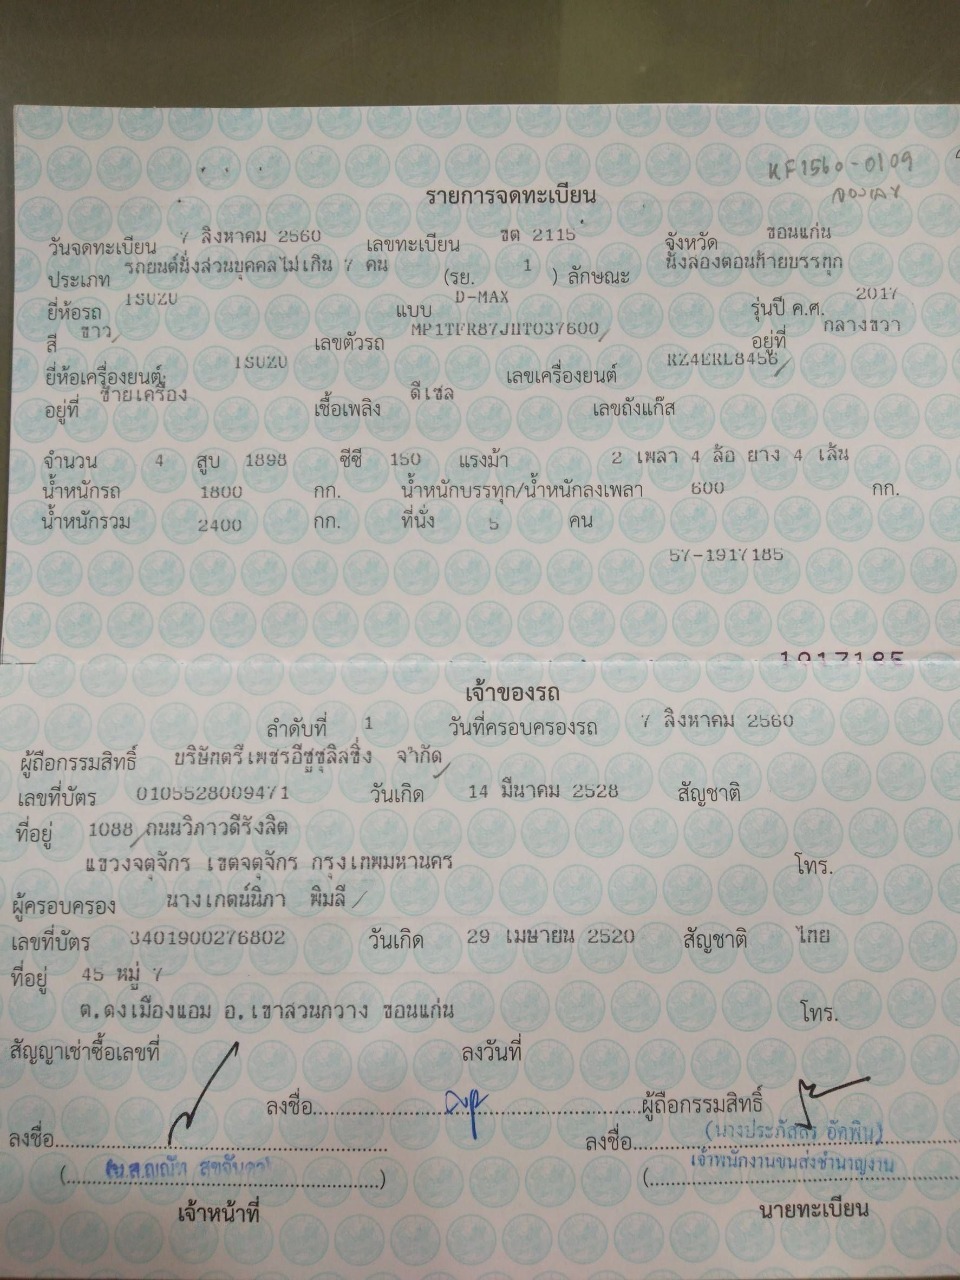 KF1560-0109
จองเลข
รายการจดทะเบียน
วันจดทะเบียน 7 สิงหาคม 2560 เลขทะเบียน ขต 2115 จังหวัด ขอนแก่น
ประเภท รถยนต์นั่งส่วนบุคคลไม่เกิน 7 คน (รย. 1 ) ลักษณะ นั่งสองตอนท้ายบรรทุก
ยี่ห้อรถ ISUZU แบบ D-MAX รุ่นปี ค.ศ. 2017
สี ขาว เลขตัวรถ MP1TFR87JHT037600 อยู่ที่ กลางขวา
ยี่ห้อเครื่องยนต์ ISUZU เลขเครื่องยนต์ RZ4ERL8456
อยู่ที่ ซ้ายเครื่อง เชื้อเพลิง ดีเซล เลขถังแก๊ส
จำนวน 4 สูบ 1898 ซีซี 150 แรงม้า 2 เพลา 4 ล้อ ยาง 4 เส้น
น้ำหนักรถ 1800 กก. น้ำหนักบรรทุก/น้ำหนักลงเพลา 600 กก.
น้ำหนักรวม 2400 กก. ที่นั่ง 5 คน
57-1917185
1917185
เจ้าของรถ
ลำดับที่ 1 วันที่ครอบครองรถ 7 สิงหาคม 2560
ผู้ถือกรรมสิทธิ์ บริษัทตรีเพชรอีซูซุลิสซิ่ง จำกัด
เลขที่บัตร 0105528009471 วันเกิด 14 มีนาคม 2528 สัญชาติ
ที่อยู่ 1088 ถนนวิภาวดีรังสิต
แขวงจตุจักร เขตจตุจักร กรุงเทพมหานคร โทร.
ผู้ครอบครอง นางเกตน์นิภา พิมลี
เลขที่บัตร 3401900276802 วันเกิด 29 เมษายน 2520 สัญชาติ ไทย
ที่อยู่ 45 หมู่ 7
ต.ดงเมืองแอม อ.เขาสวนกวาง ขอนแก่น โทร.
สัญญาเช่าซื้อเลขที่ ลงวันที่
ลงชื่อ ผู้ถือกรรมสิทธิ์
ลงชื่อ ลงชื่อ (นางประภัสสร อัคพิน)
(น.ส. ) เจ้าพนักงานขนส่งชำนาญงาน
เจ้าหน้าที่ นายทะเบียน